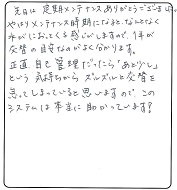 先日は定期メンテナンスありがとうございました。
やはりメンテナンス時期になると、なんとなく
水がにおってくる感じがしますので、1年が
交替の目安なのがよく分かります。
正直、自己管理だったら「あと少し」
という気持ちから、ズルズルと交替を
怠ってしまっていると思いますので、この
システムは本当に助かっています!